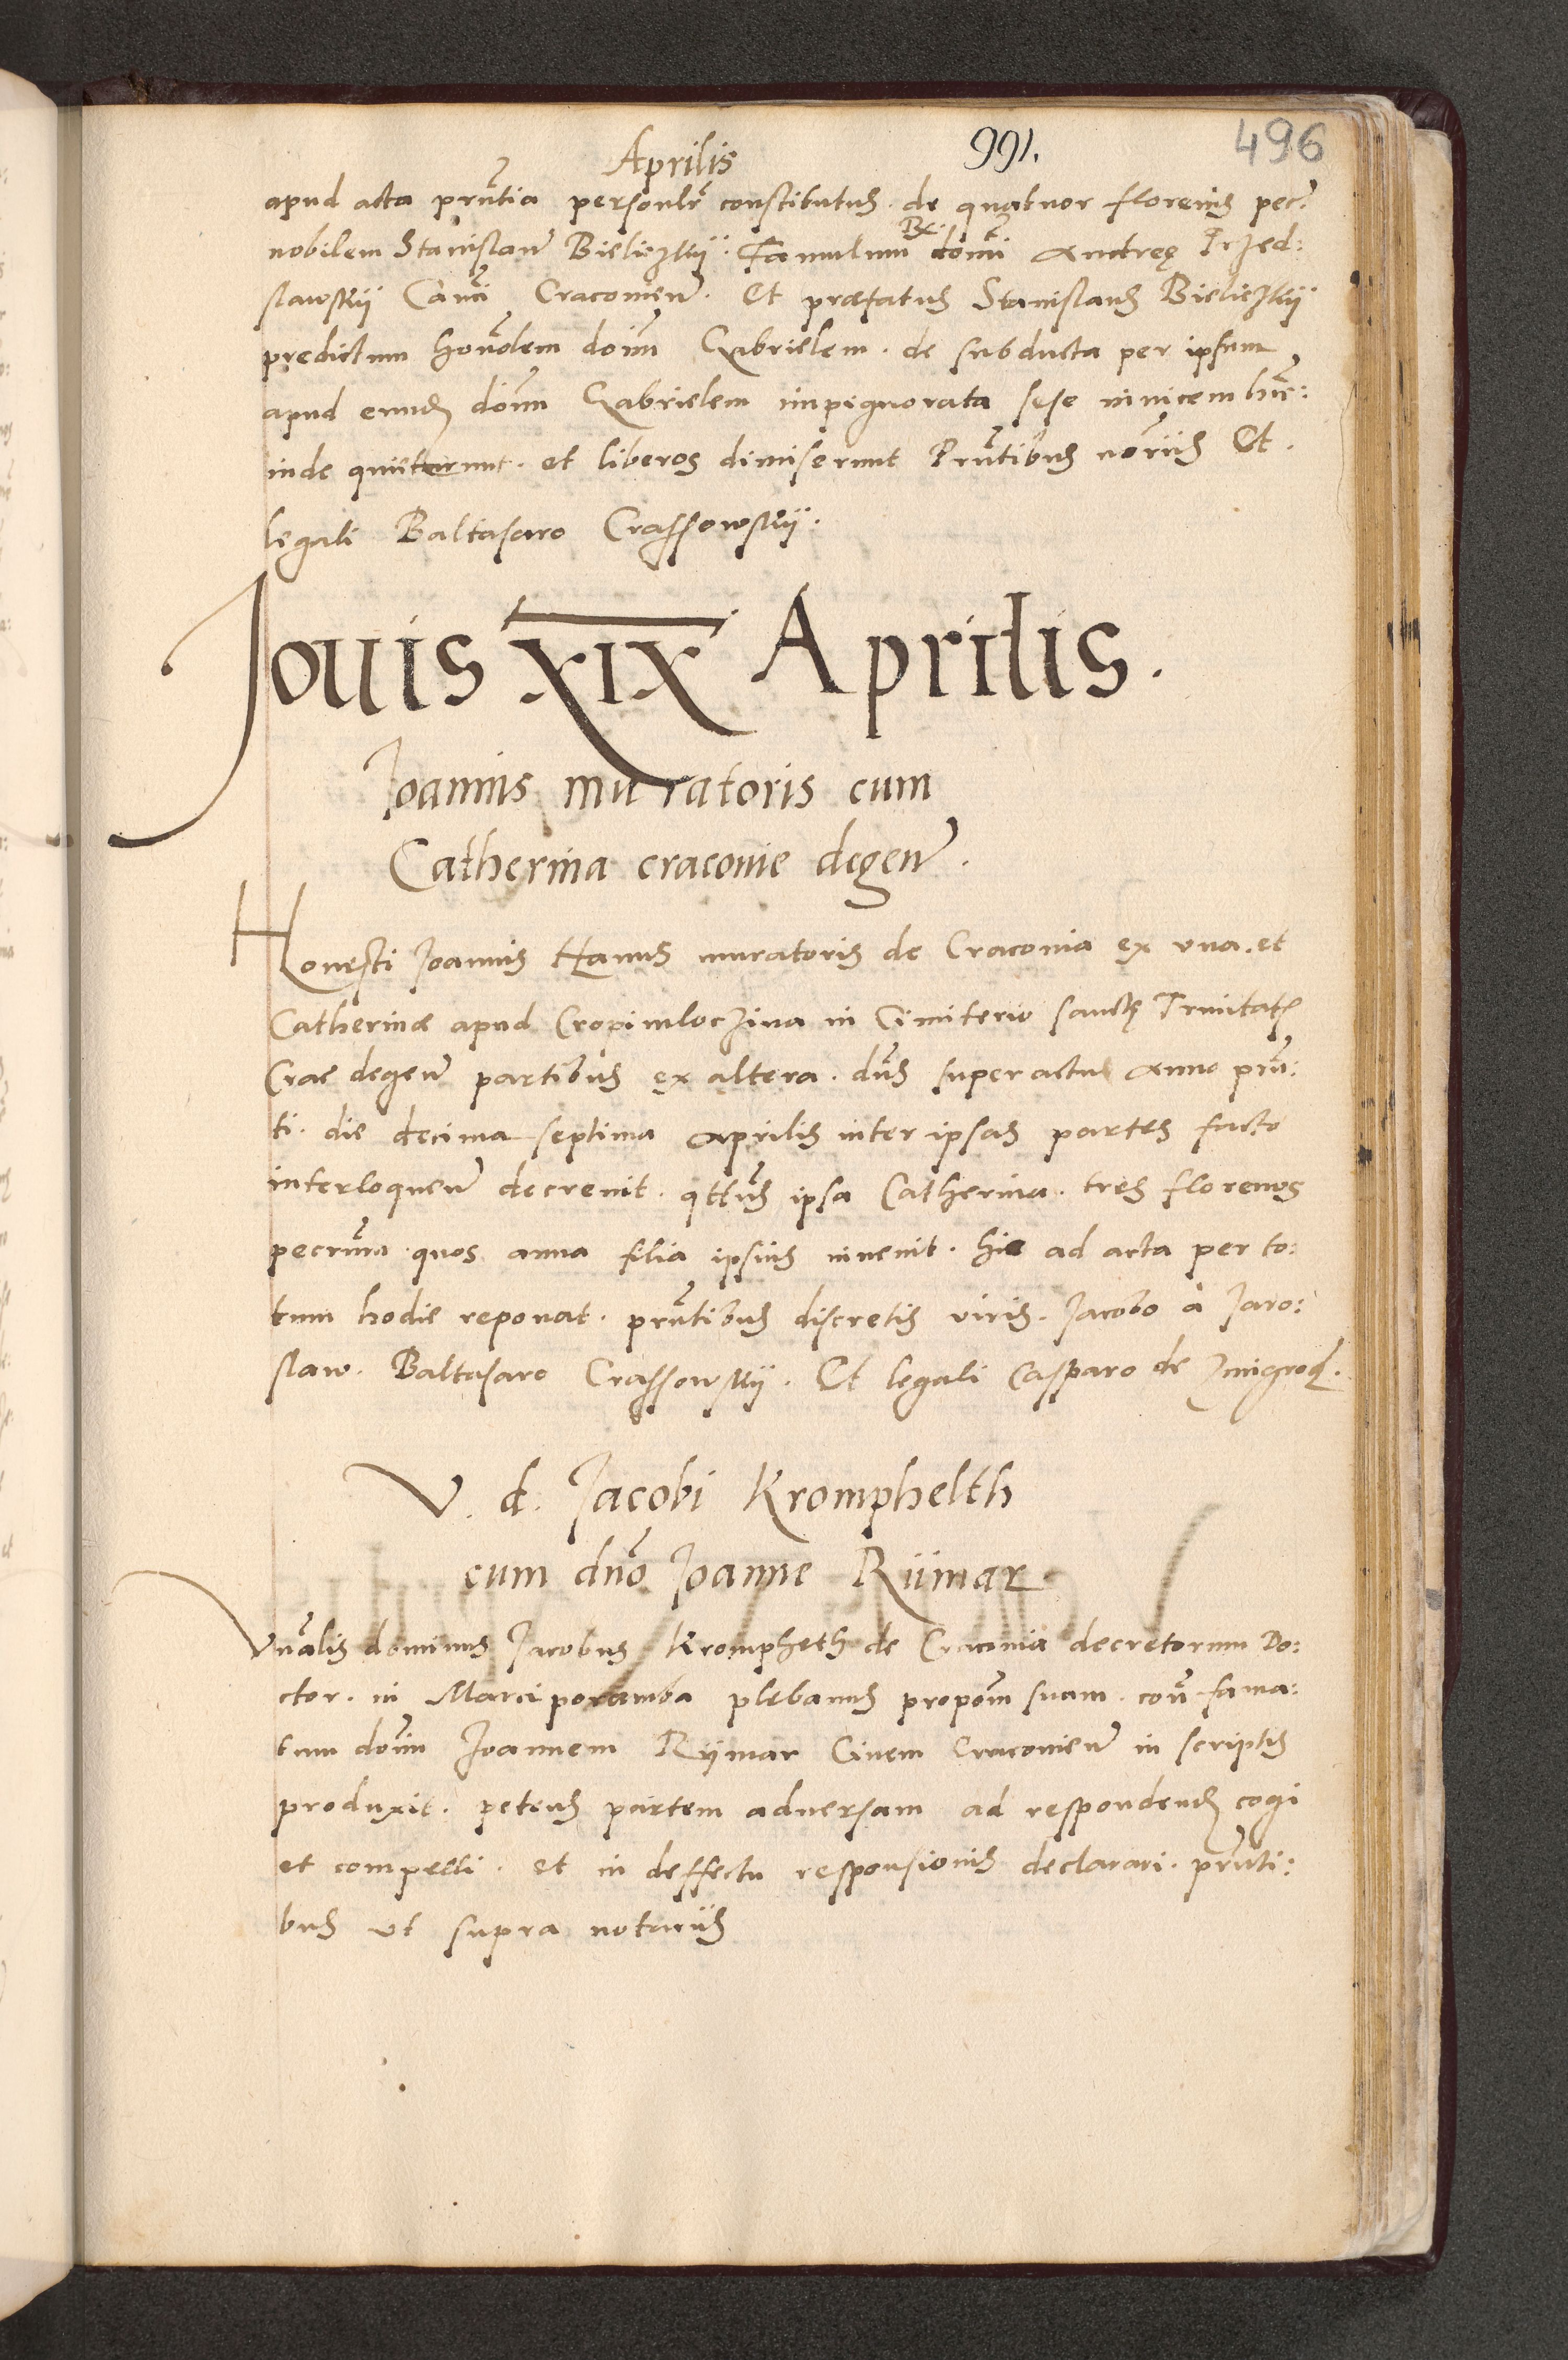 Aprilis 991. 496
apud acta prñtia personlr constitutus. de quatuor florenis pec?
nobilem Stanislaum Bieliczkÿ. Famulum R. domi Andreę Trzed:
slawskÿ Canci Cracovien. Et præfatus Stanislaus Bieliczkÿ
predictum honolem doim Gabrielem. de subducta per ipsum
apud eund doim Gabrielem impignorata sese invicem hic:
inde quittarunt. et liberos dimiserunt Prñtibus noriis Et.
legali Baltasaro Crassowskÿ.
Jouis XIX Aprilis.
Joannis muratoris cum
Catherina cracovie degen.
Honesti Joannis Hanus muratoris de Cracovia ex vna. et
Catherinæ apud Cropiwloczina in Cimiterio sancte Trinitatis
Crac degen partibus ex altera. dns super actus Anno prñ:
ti. die decima septima Aprilis inter ipsas partes facto
interloquen decrevit. qttus ipsa Catherina. tres florenos
pecrum quos anna filia ipsius invenit. hic ad acta per to:
tum hodie reponat. prñtibus discretis viris. Jacobo à Jaro:
slaw. Baltasaro Crassowskÿ. Et legali Casparo de Zmigrod.
V. d. Jacobi Kromphelth
cum dno Joanne Rÿmar
Vnalis dominus Jacobus Krompheth de Cracovia decretorum Do:
ctor. in Marciporamba plebanus propom suam. con fama:
tum doim Joannem Rÿmar Civem Cracovien in scriptis
produxit. petens partem aduersam ad respondend cogi
et compelli. et in deffectu responsionis declarari. prñti:
bus vt supra notariis